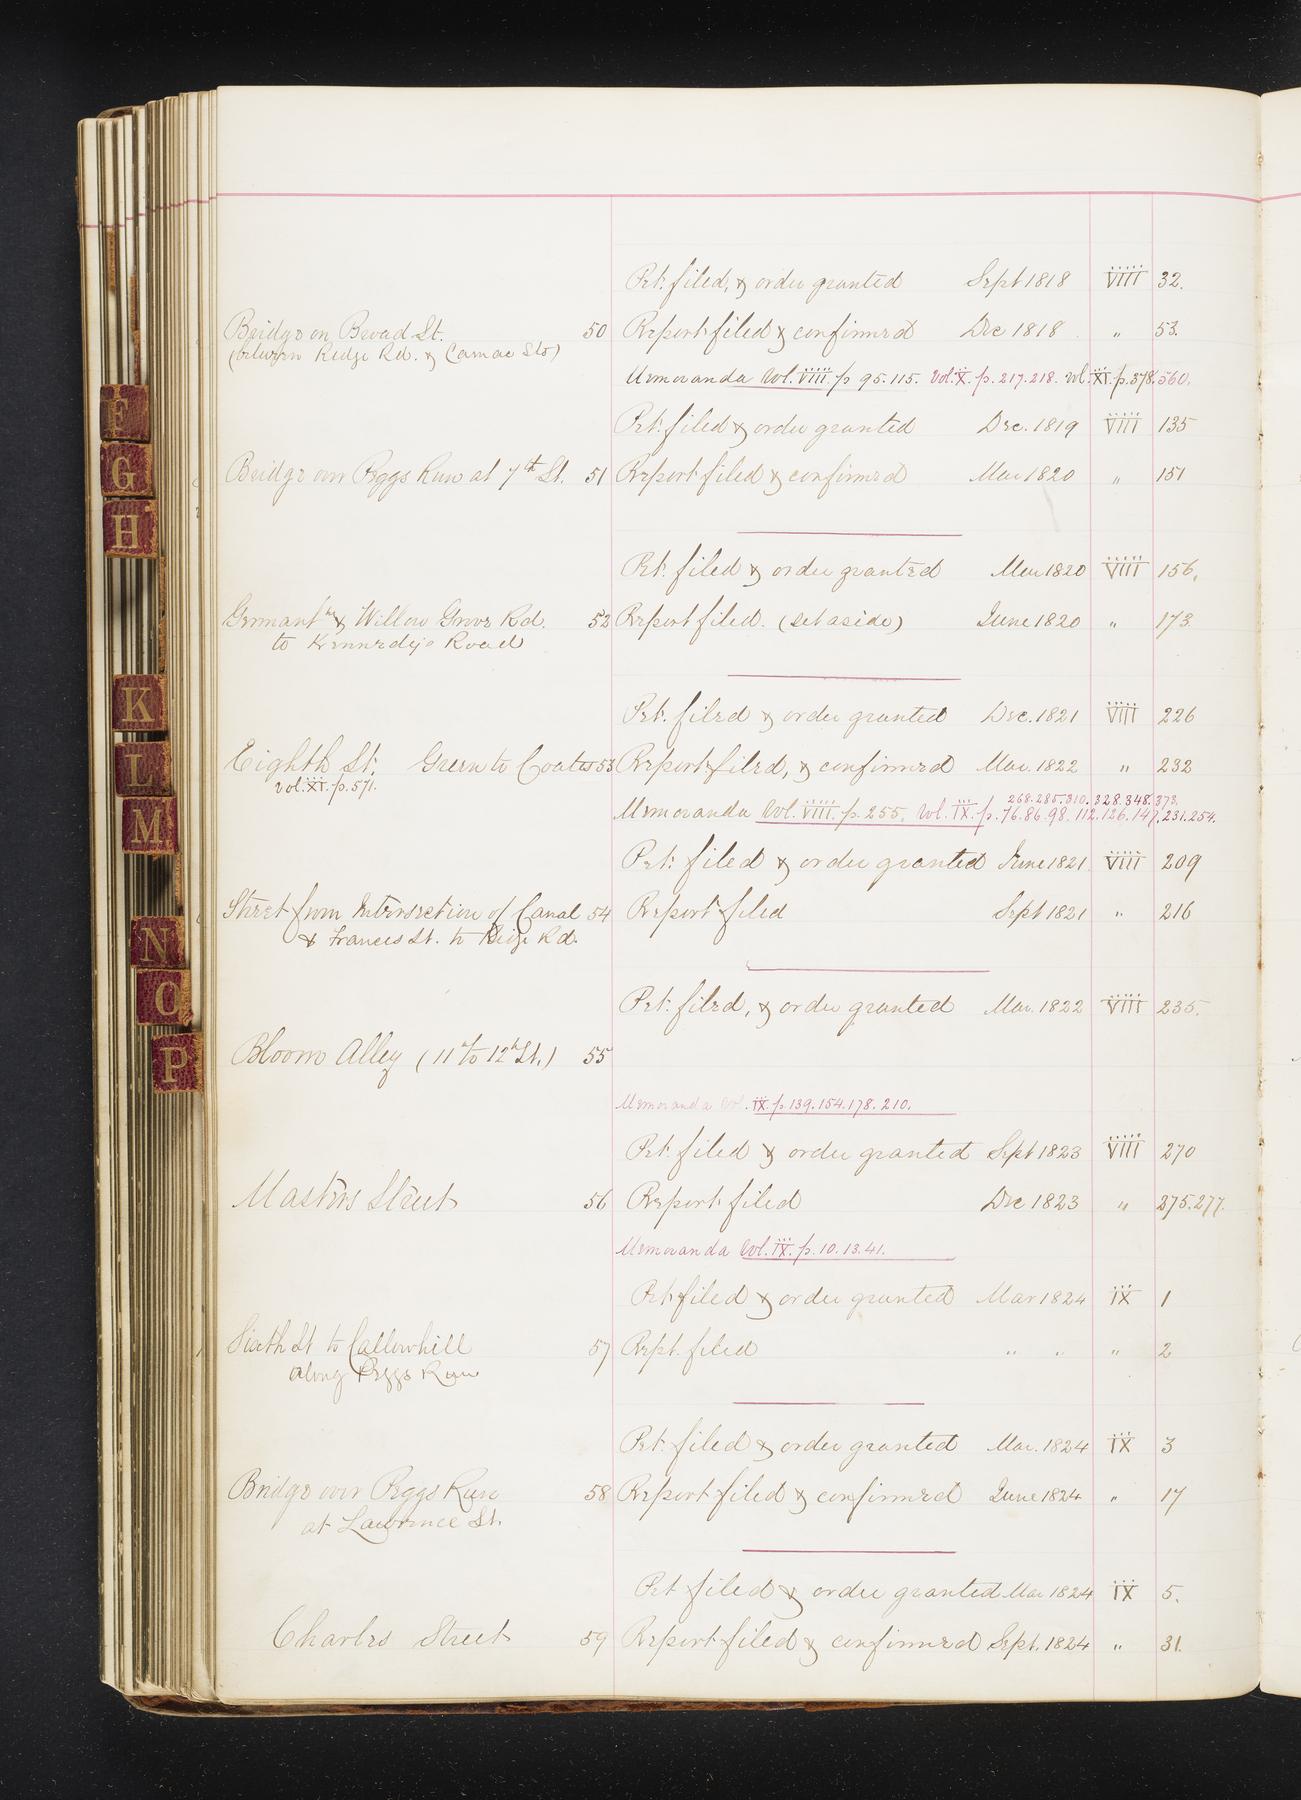 Pet. filed, & order granted Sept 1818 VIII 32.
Bridge on Broad St. 50 Report filed & confirmed Dec 1818 " 53.
(between Ridge Rd. & Camac Sts)
Memoranda Vol. VIII. p 95. 115. Vol. X. p. 217. 218. Vol. XI. p. 378. 560.
Pet. filed & order granted Dec. 1819 VIII 135
Bridge over Peggs Run at 7th St. 51 Report filed & confirmed Mar 1820 " 151
F
G
H
Pet. filed & order granted Mar 1820 VIII 156.
Germantn & Willow Grove Rd. 52 Report filed. (set aside) June 1820 " 173
to Kennedy's Road
K
Pet. filed & order granted Dec. 1821 VIII 226
Eighth St. Green to Coates 53 Report filed, & confirmed Mar. 1822 " 232
vol. XI. p. 571.
L
268. 285. 310. 328. 348. 373.
Memoranda Vol. VIII. p. 255. Vol. IX. p. 76. 86. 98. 112. 126. 147. 231. 254.
M
Pet. filed & order granted June 1821 VIII 209
Street from Intersection of Canal 54 Report filed Sept 1821 " 216
& Frances St. to Ridge Rd.
N
O
Pet. filed, & order granted Mar. 1822 VIII 235.
Bloom Alley (11th to 12th St.) 55
P
Memoranda Vol. IX. p. 139. 154. 178. 210.
Pet. filed & order granted Sept 1823 VIII 270
Masters Street 56 Report filed Dec 1823 " 275. 277.
Memoranda Vol. IX. p. 10. 13. 41.
Pet. filed & order granted Mar 1824 IX 1
Sixth St to Callowhill 57 Rept. filed " " " 2
along Peggs Run
Pet. filed & order granted Mar. 1824 IX 3
Bridge over Peggs Run 58 Report filed & confirmed June 1824 " 17
at Lawrence St.
Pet filed & order granted Mar 1824 IX 5.
Charles Street 59 Report filed & confirmed Sept. 1824 " 31.